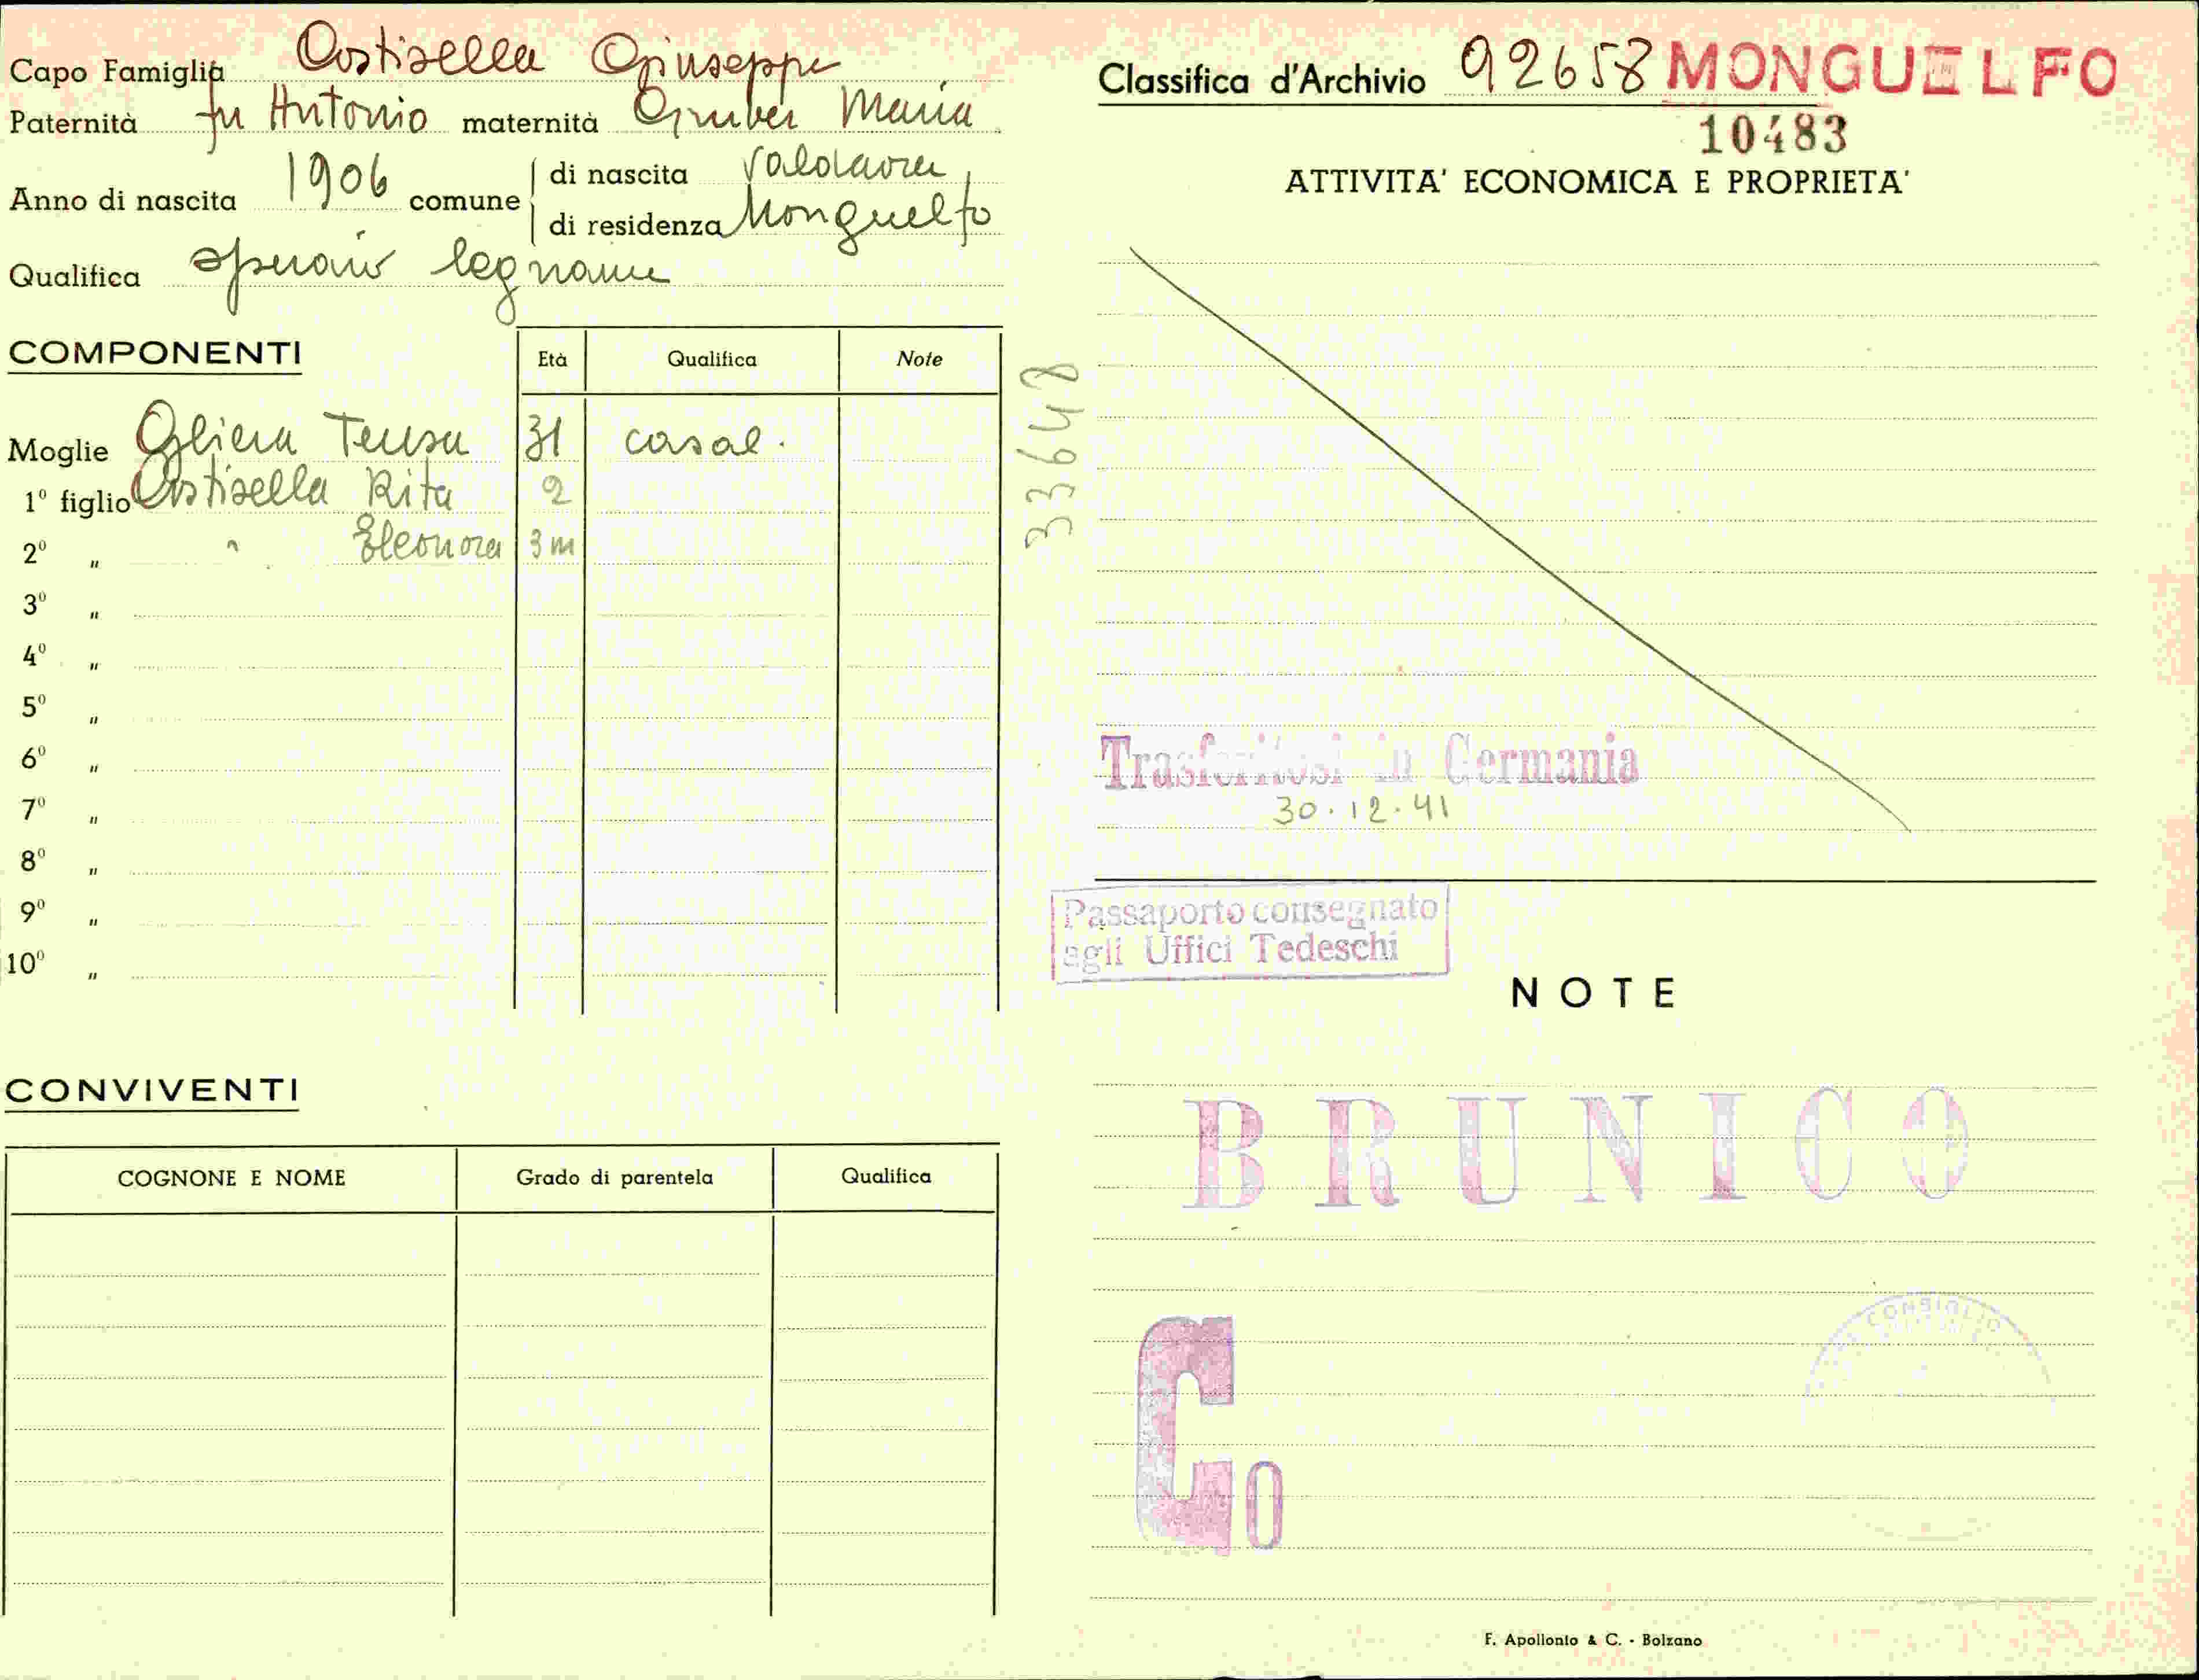 Capo Famiglia Costisella Giuseppe
Paternità fu Antonio maternità Gruber Maria
Anno di nascita 1906 comune di nascita Valdaora
di residenza Monguelfo
Qualifica operaio legname
COMPONENTI Età Qualifica Note
Moglie Teresa 31 casal.
1º figlio Costisella Rita 2
2º " " Eleonora 3 m
3º "
4º "
5º "
6º "
7º "
8º "
9º "
10º "
CONVIVENTI
COGNONE E NOME Grado di parentela Qualifica
Classifica d'Archivio 92658 MONGUELFO
10483
ATTIVITA' ECONOMICA E PROPRIETA'
33648
Trasferitosi in Germania
30.12.41
Passaporto consegnato
agli Uffici Tedeschi
NOTE
BRUNICO
C0
CONSIGLIO
F. Apollonio & C. - Bolzano